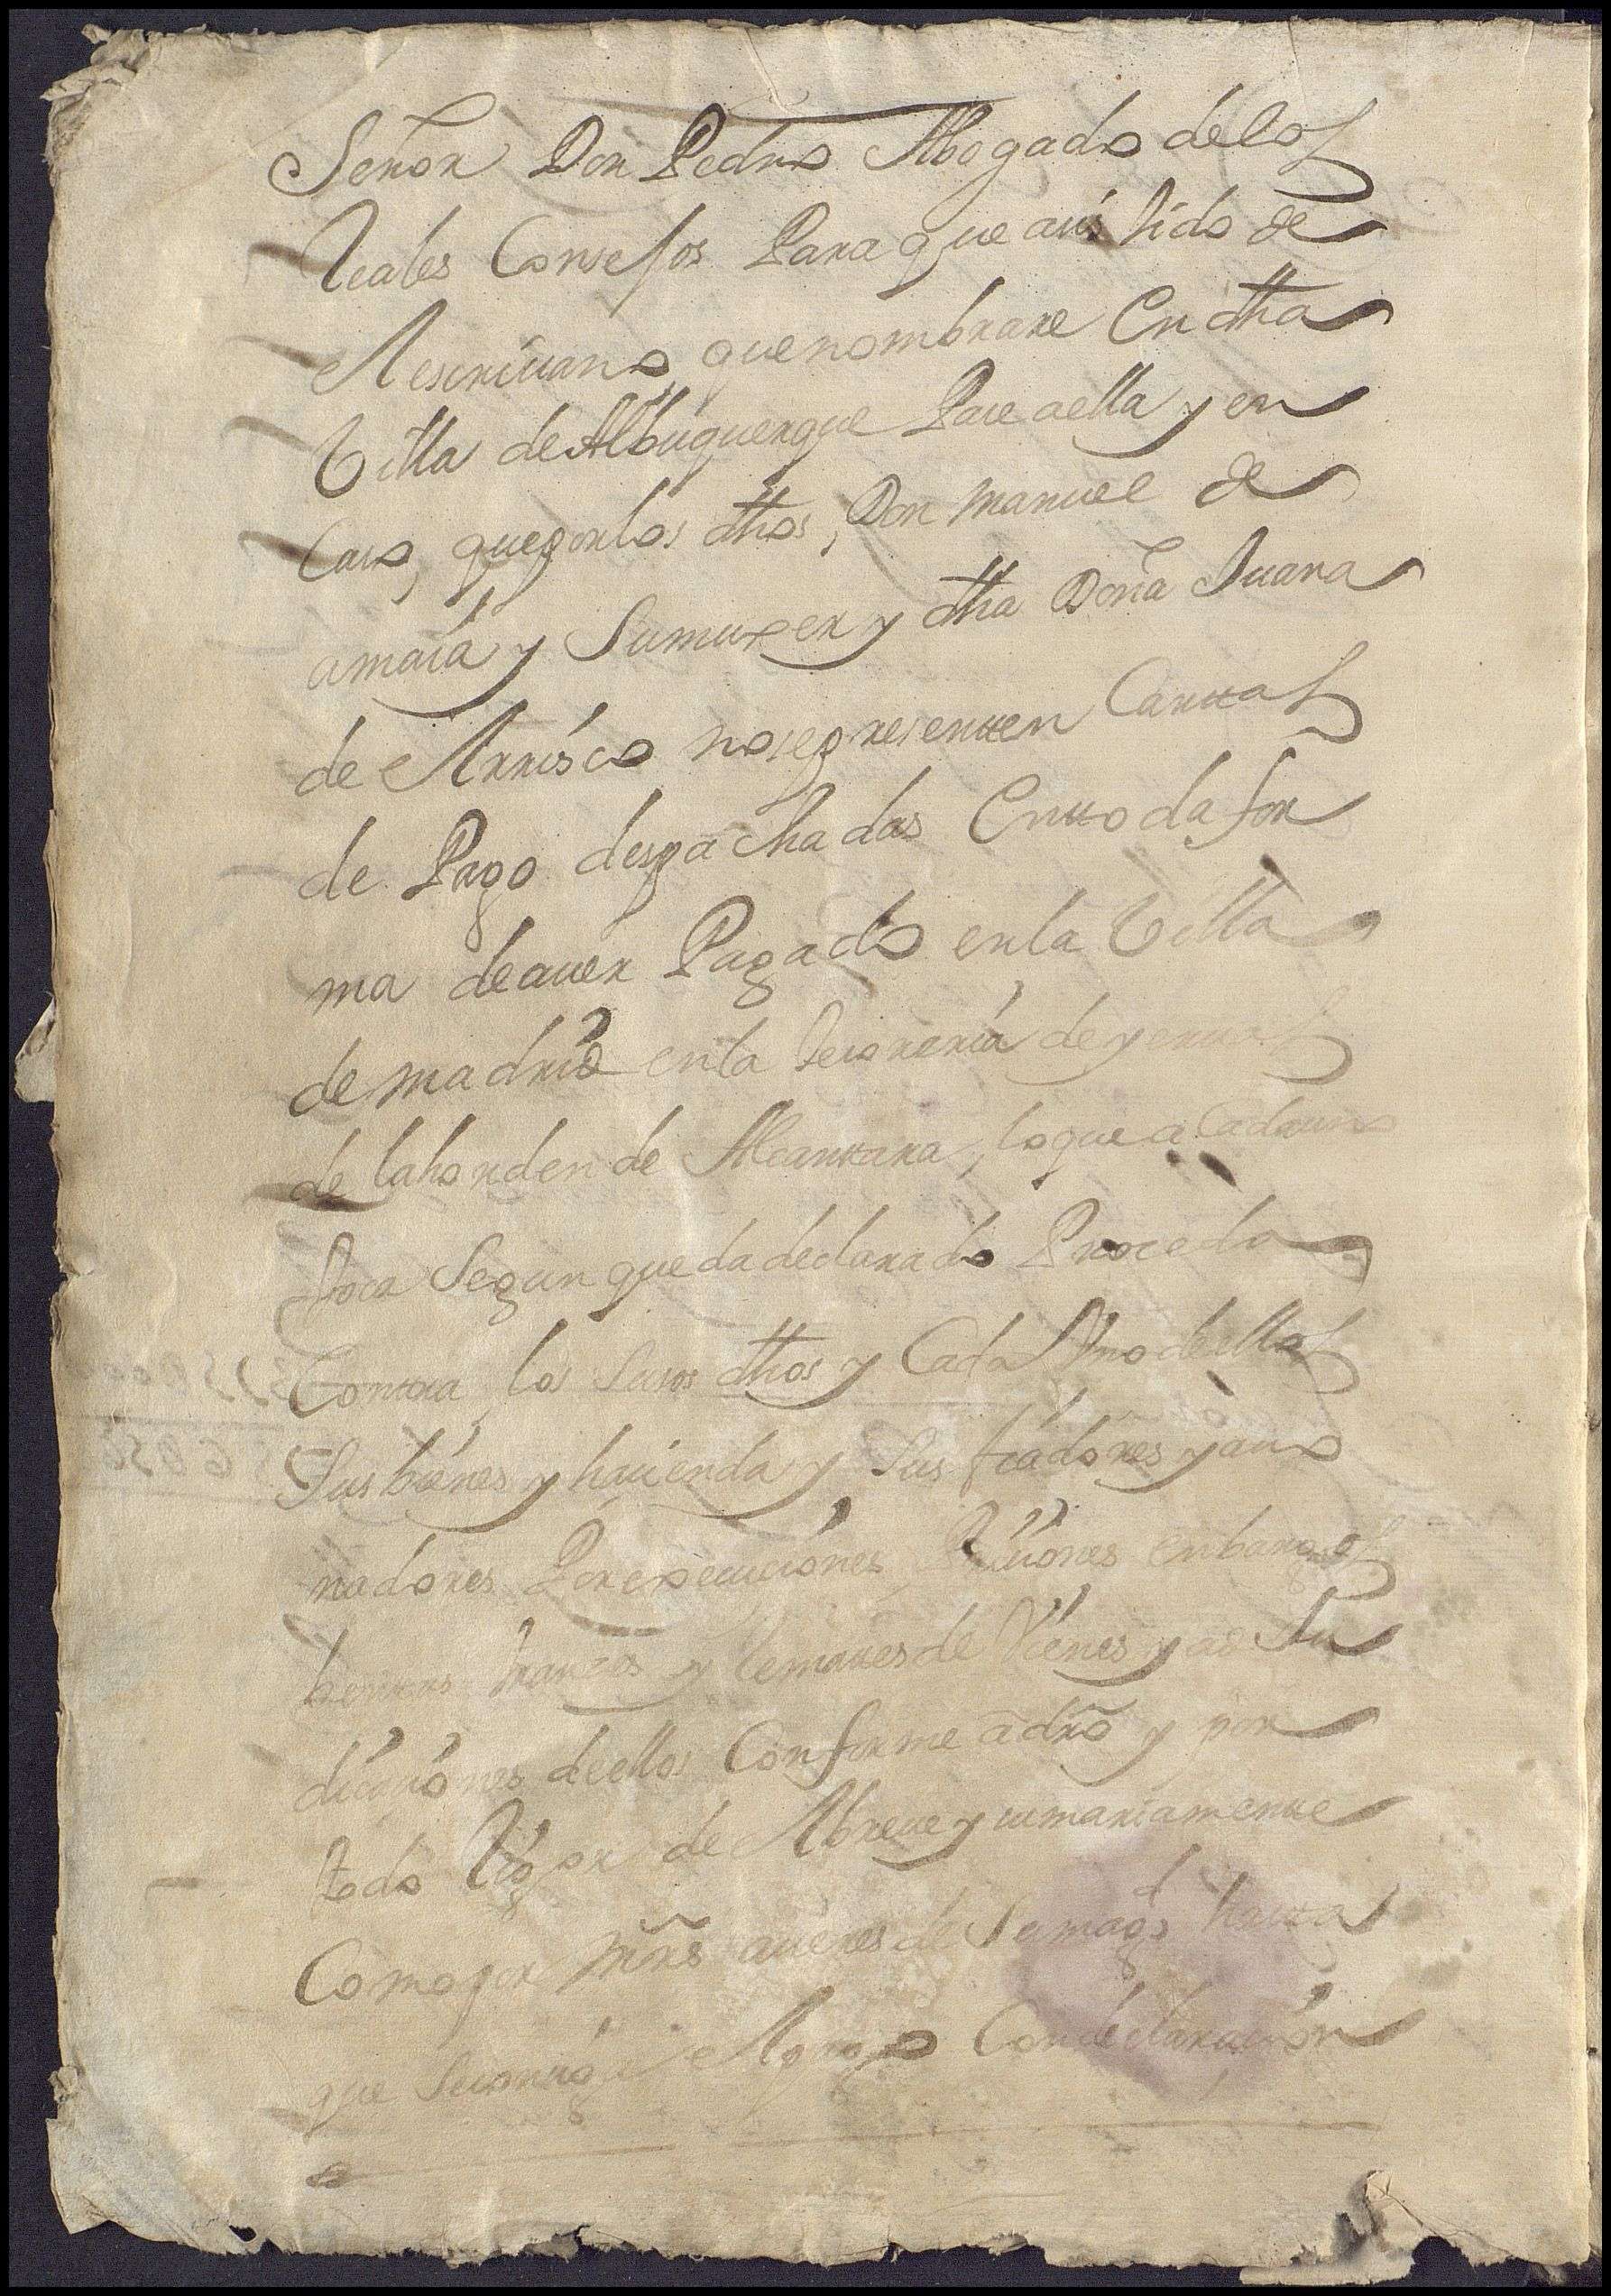 Señor Don Pedro Abogado de los
Reales Consejos Para que asistido de
Aescriuano que nombrare En dha
Villa de Alburquerque Pase a ella y en
Caso, que por los dhos, Don manuel de
amaia y Su muxer y dha Doña Juana
de Arrisco no se presenten Cartas
de Pago despachadas En toda for
ma de auer Pagado en la Villa
de madrid en la tesoreria de yeruas
de la horden de Alcantara, lo que a Cada uno
toca Segun queda declarado Proceda
Contra los Suso dhos y Cada Vno de ellos
Sus bienes y hacienda y Sus fiadores y auo
nadores Por execuciones Priciones enbargos
bentas trances y Remates de Vienes y ad Ju
dicaciones de ellos Conforme a dro y por
todo Rigor de Abreue y sumariamente
Como por mrs aueres de Su magd hasta
que Se consiga el Pago Con declaracion